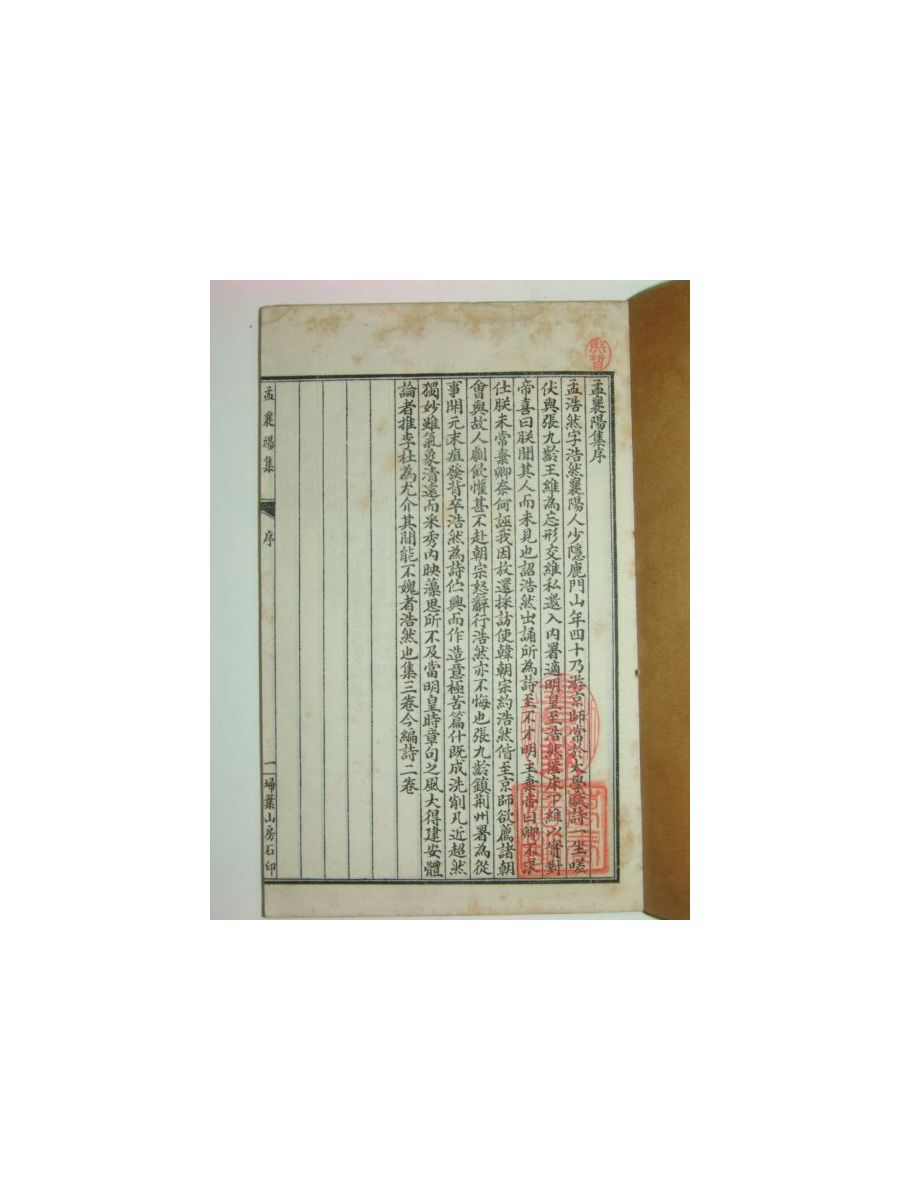 孟襄陽集序
孟浩然字浩然襄陽人少隱鹿門山年四十乃游京師常於太學賦詩一坐嗟
伏與張九齡王維為忘形交維私邀入內署適明皇至浩然匿床下維以實對
帝喜曰朕聞其人而未見也詔浩然出誦所為詩至不才明主棄帝曰卿不求
仕朕未常棄卿奈何誣我因放還採訪使韓朝宗約浩然偕至京師欲薦諸朝
會與故人劇飲懽甚不赴朝宗怒辭行浩然亦不悔也張九齡鎮荆州署為從
事開元末疽發背卒浩然為詩伫興而作造意極苦篇什既成洗削凡近超然
獨妙雖氣象清遠而采秀內映藻思所不及當明皇時章句之風大得建安體
論者推李杜為尤介其間能不媿者浩然也集三卷今編詩二卷
孟襄陽集
序
一
埽葉山房石印
熙哲